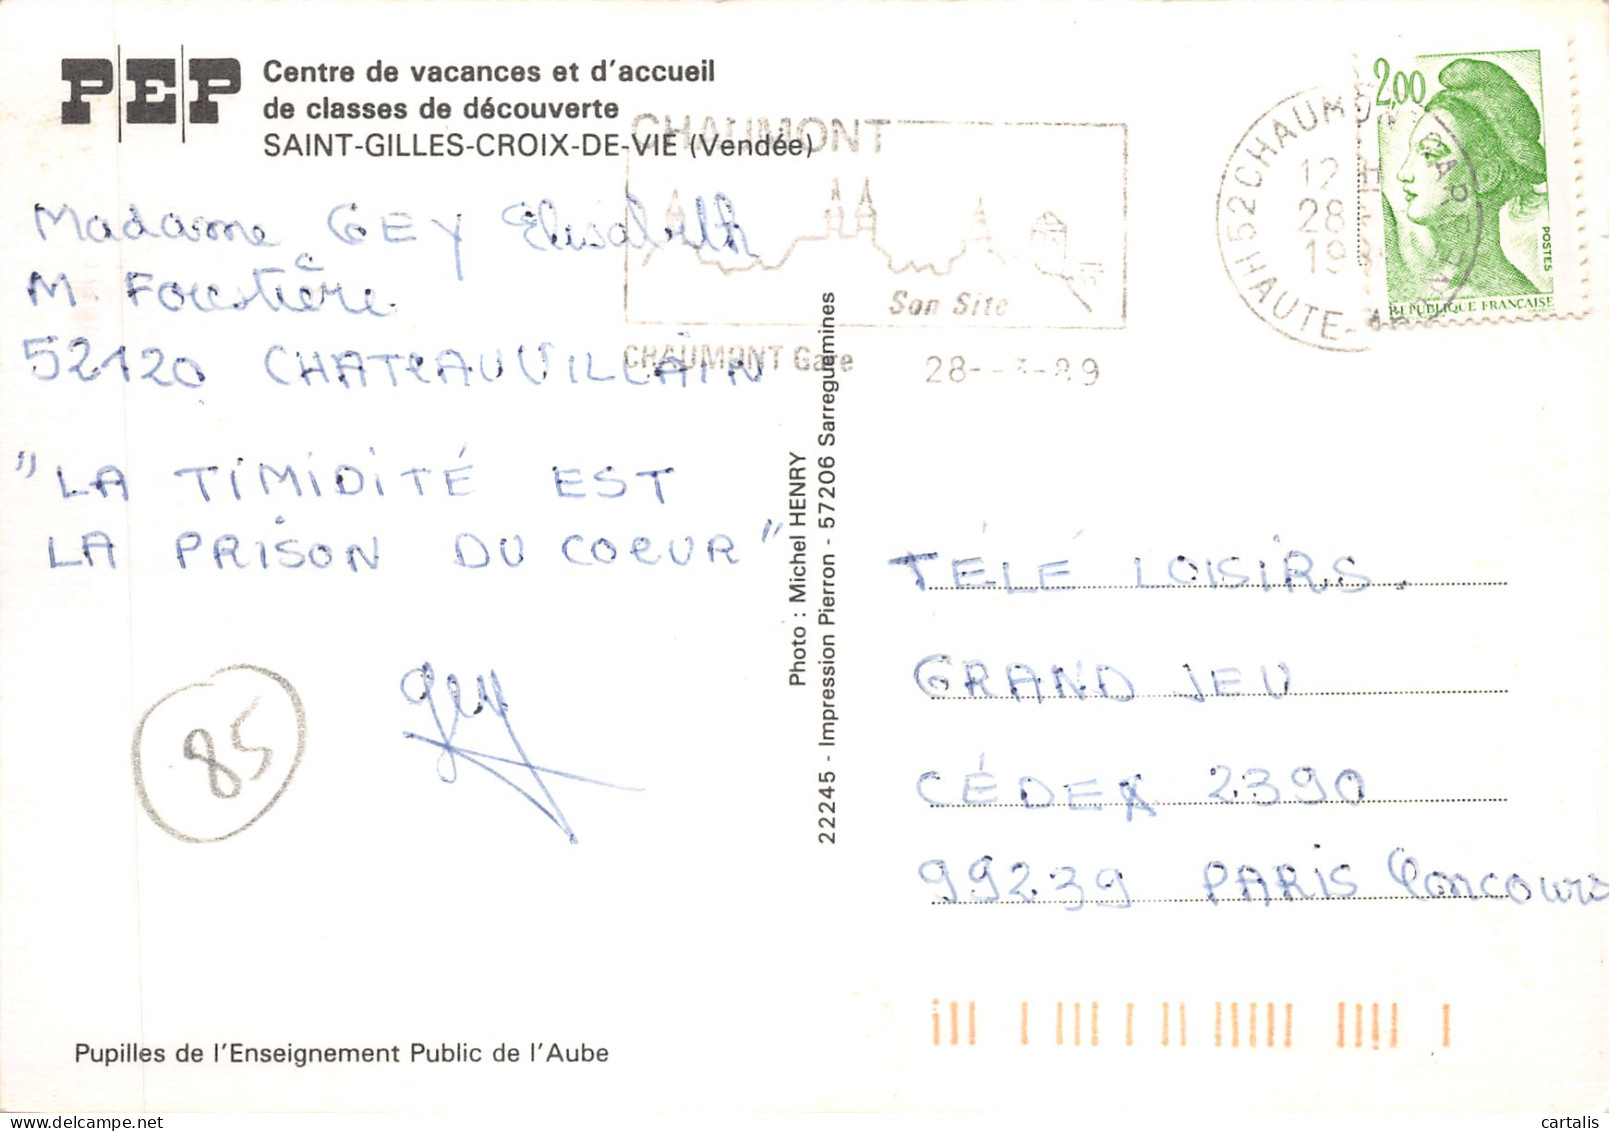 PEP
Centre de vacances et d'accueil
de classes de découverte
SAINT-GILLES-CROIX-DE-VIE (Vendée)
CHAUMONT
Son Site
CHAUMONT Gare 28- -3-89
52 CHAUMONT GARE
12 H
28
19
HAUTE-
2,00
POSTES
REPUBLIQUE FRANÇAISE
Madame GEY Elisabeth
M. Forestière
52120 CHATEAUVILLAIN
"LA TIMIDITÉ EST
LA PRISON DU COEUR"
gey
85
Photo : Michel HENRY
22245 - Impression Pierron - 57206 Sarreguemines
TÉLÉ LOISIRS.
GRAND JEU
CÉDEX 2390
99239 PARIS Concours
Pupilles de l'Enseignement Public de l'Aube
cartalis